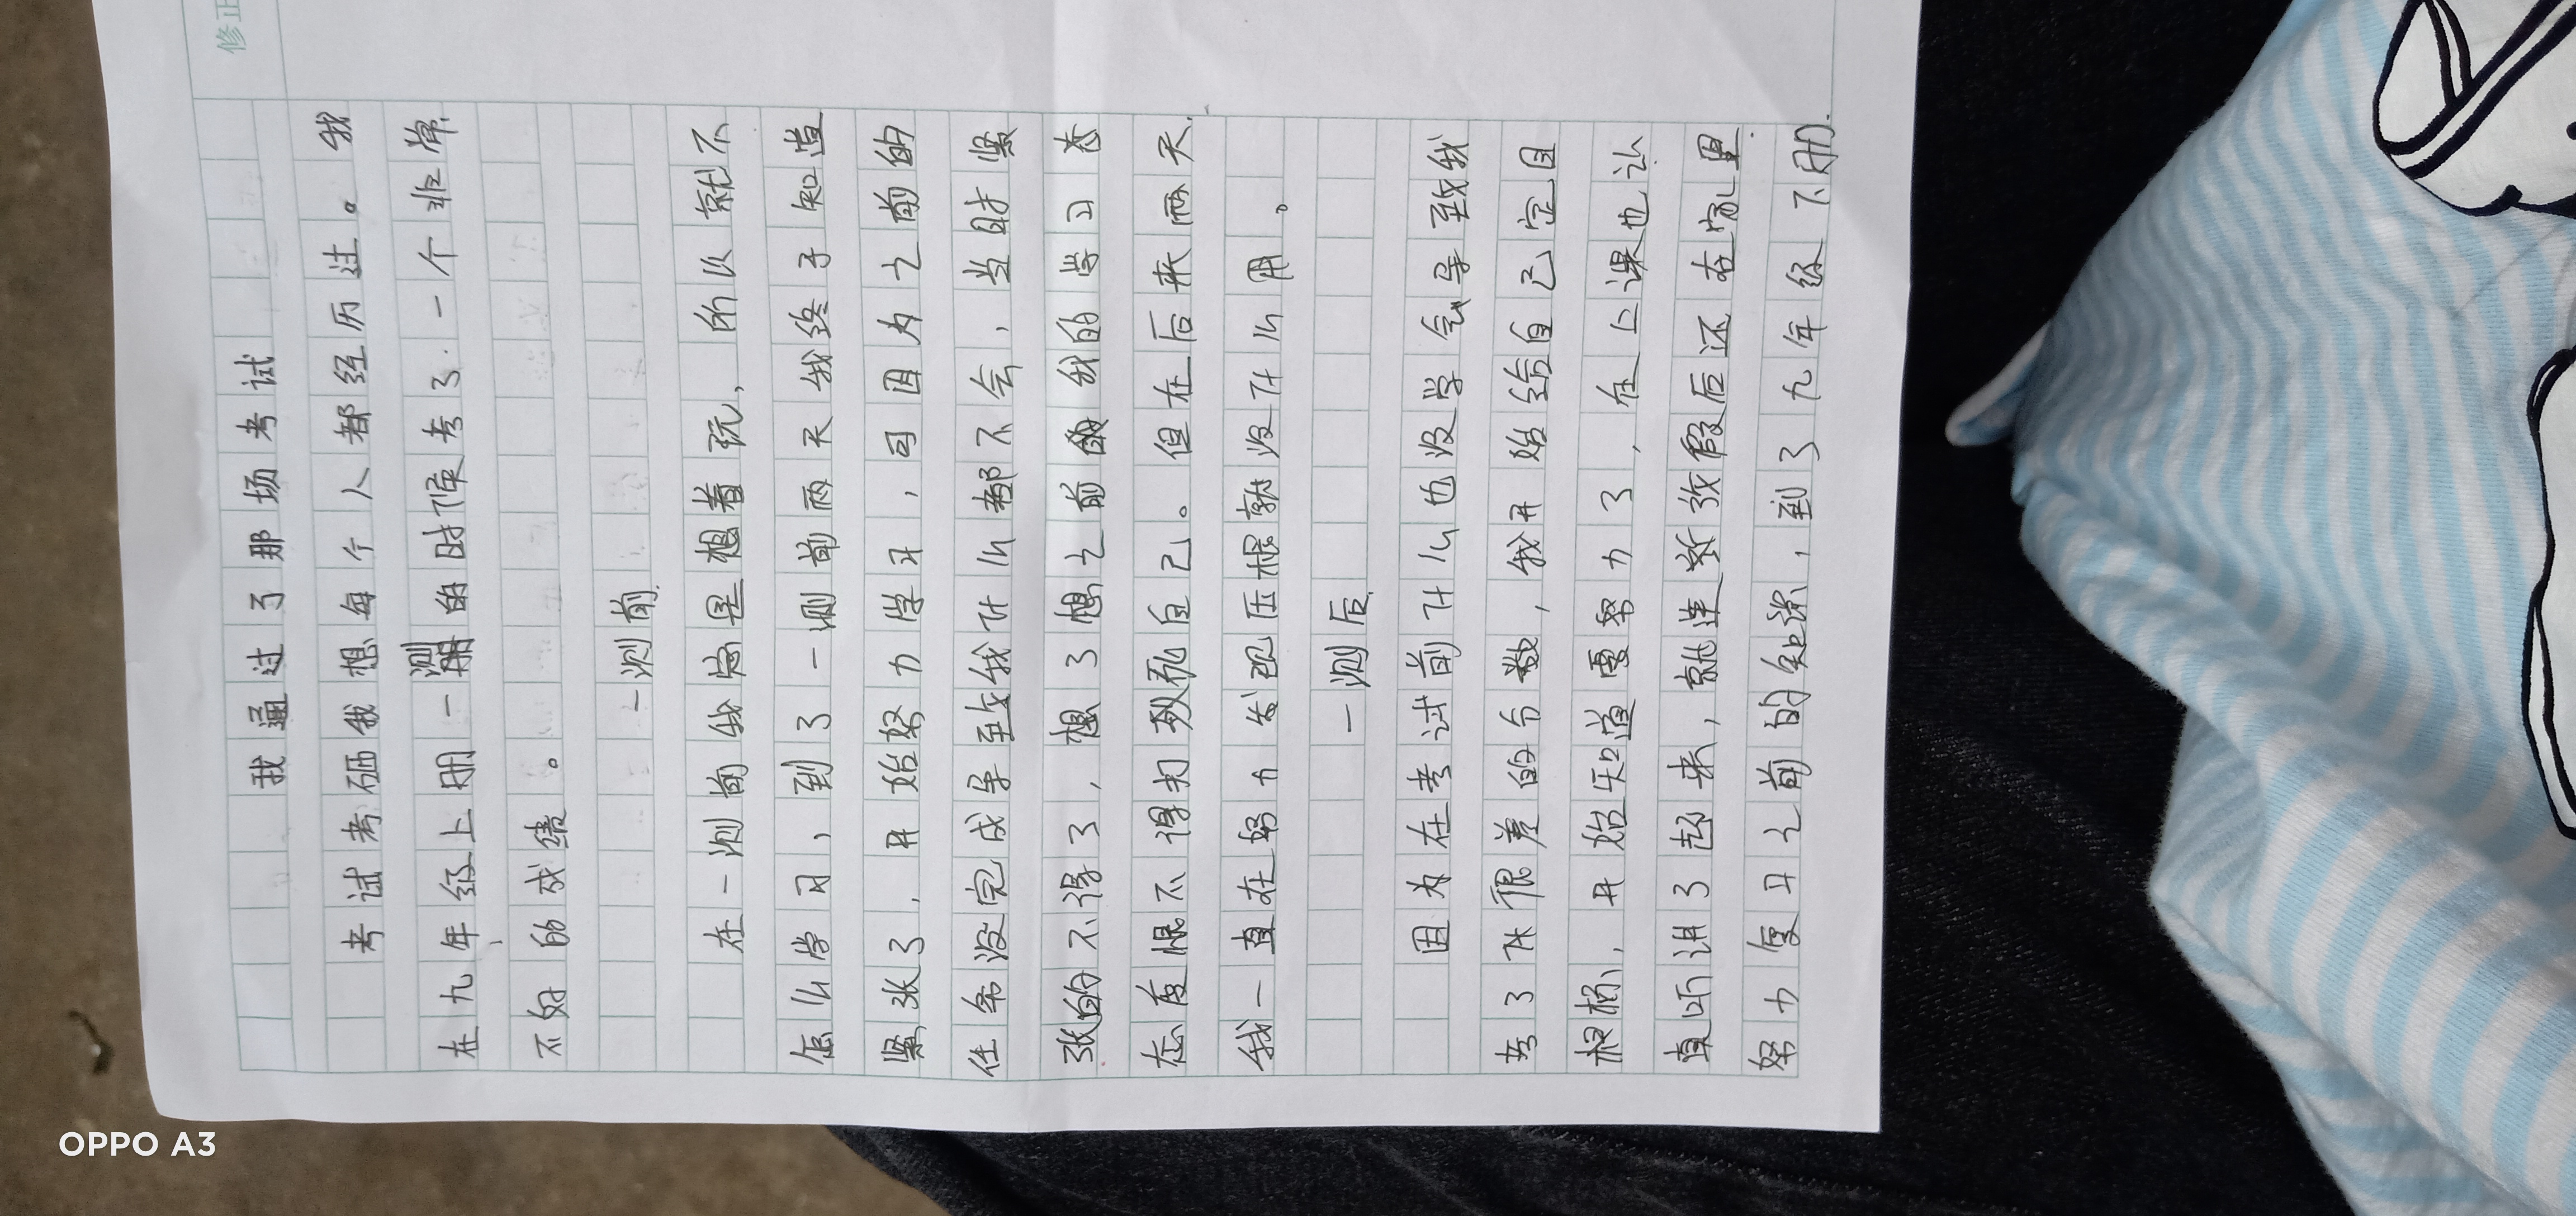 修正
我通过了那场考试
考试考砸我想每个人都经历过。我
在九年级上册一测的时候考了一个非常
不好的成绩。
一测前
在一测前我总是想着玩,所以就不
怎么学习,到了一测前两天我终于知道
紧张了,开始努力学习,可因为之前的
任务没完成导致我什么都不会,当时紧
张的不得了,想了想之前我的学习态
态度恨不得打死自己。但在后来两天
我一直在努力发现压根就没什么用。
一测后
因为在考试前什么也没学会导致我
考了个很差的分数,我开始给自己定目
标,开始知道要努力了,在上课也认
真听讲了起来,就连放假后还在家里
努力复习之前的知识,到了九年级下册
OPPO A3